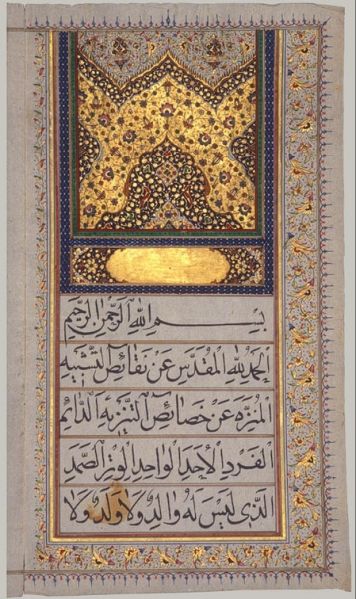 بسم الله الرحمن الرحيم
الحمد لله المقدس عن نقائص التشبيه
المنزه عن خصائص التنزيه الدائم
الفرد الاحد الواحد الوتر الصمد
الذي ليس له والد ولا ولد ولا